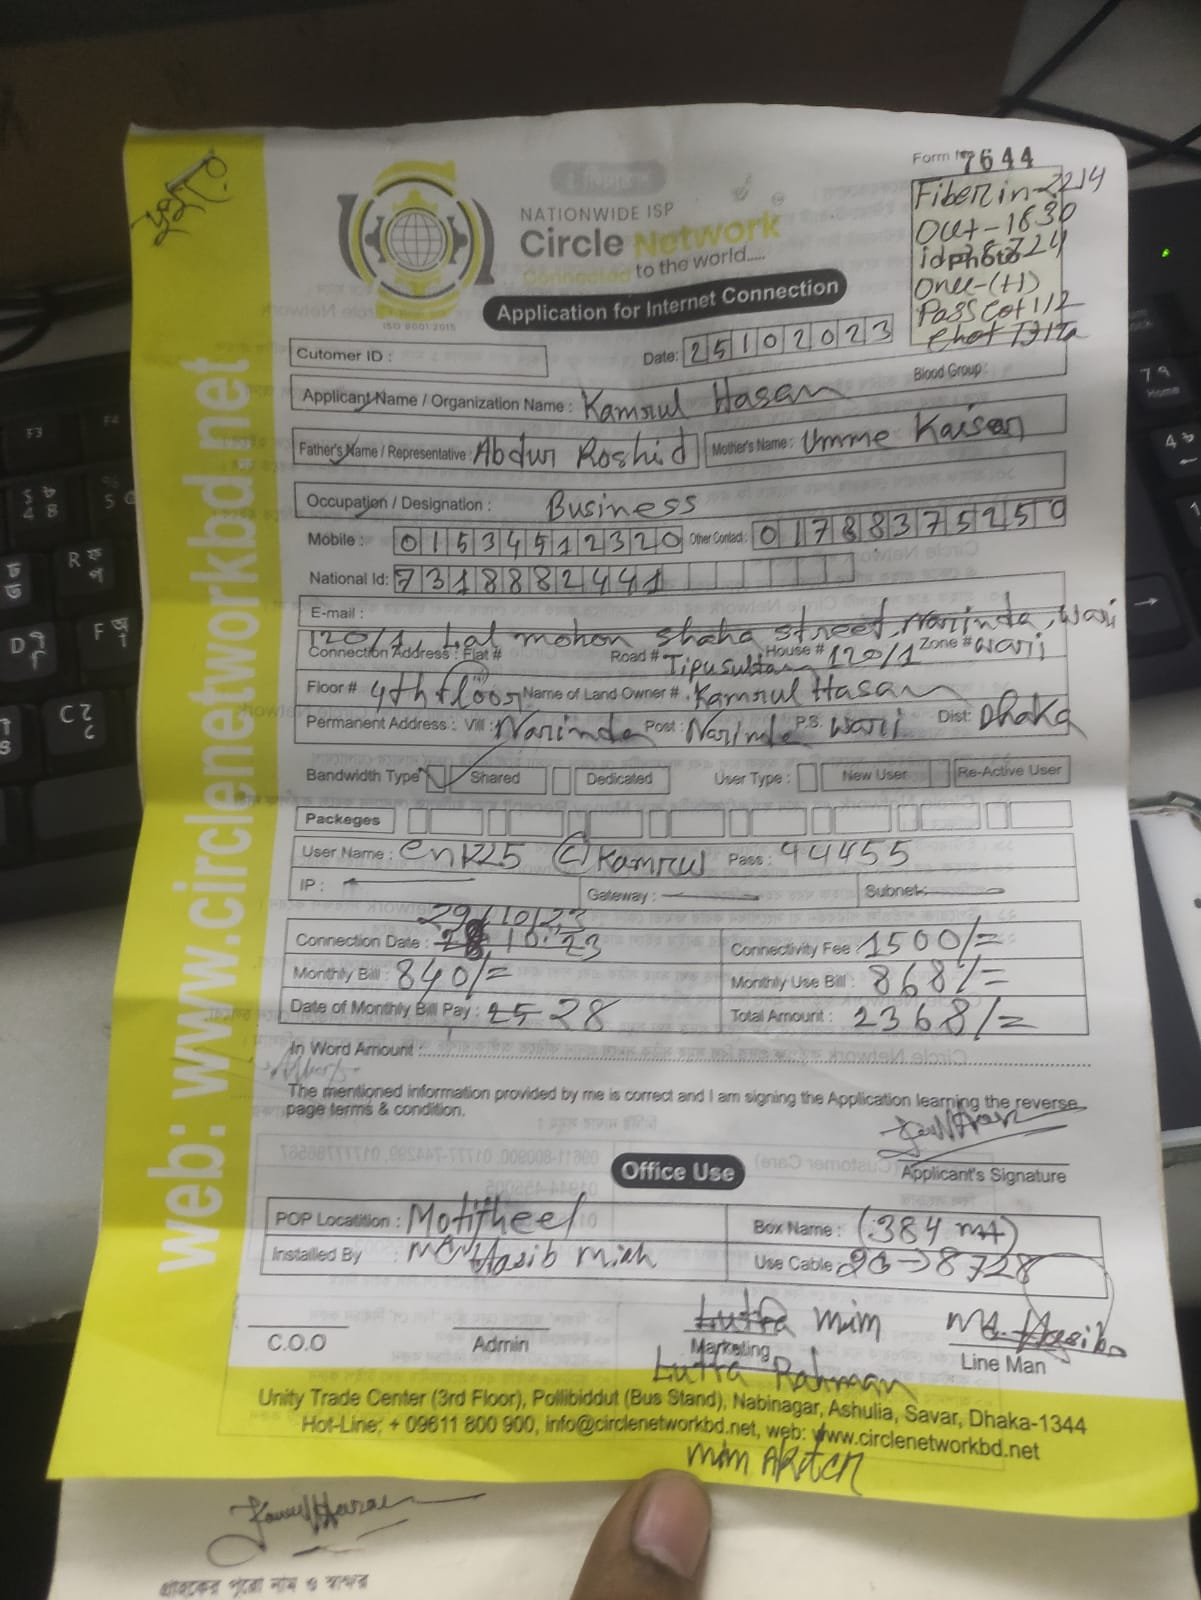 Form No 7644
Fiber in - 2214
Out - 1830
id 28724
Photo
Onu - (+1)
NATIONWIDE ISP
Circle Network
Connected to the world.....
ISO 9001:2015
Application for Internet Connection
Cutomer ID :
Date: 25102023
Blood Group:
Applicant Name / Organization Name : Kamrul Hasan
Father's Name / Representative : Abdur Roshid Mother's Name : Umme Kaisar
Occupation / Designation : Business
Mobile : 01534512320 Other Contact : 01788375250
National Id: 7318882441
E-mail :
120/1, Lal mohon shaha street, Narinda, Wari
Connection Address : Flat # Road # Tipusultan House # 120/1 Zone # Wari
Floor # 4th floor Name of Land Owner # Kamrul Hasan
Permanent Address : Vill : Narinda Post : Narinda P.S. Wari Dist: Dhaka
Bandwidth Type Shared Dedicated User Type : New User Re-Active User
Packeges
User Name : Kamrul Pass : 44455
IP : Gateway : Subnet:
29/10/23
Connection Date : 10.23 Connectivity Fee : 1500/=
Monthly Bill : 840/= Monthly Use Bill : 868/=
Date of Monthly Bill Pay : 25 28 Total Amount : 2368/=
In Word Amount :
The mentioned information provided by me is correct and I am signing the Application learning the reverse
page terms & condition.
Applicant's Signature
Office Use
POP Locatition : Motijheel Box Name : (384 mA)
Installed By : Hasib Miah Use Cable 8728
Lutfa Mim Md. Hasib
C.O.O Admin Marketing Line Man
Lutfa Rahman
Unity Trade Center (3rd Floor), Pollibiddut (Bus Stand), Nabinagar, Ashulia, Savar, Dhaka-1344
Hot-Line; + 09611 800 900, info@circlenetworkbd.net, web: www.circlenetworkbd.net
Mim Akter
web: www.circlenetworkbd.net
গ্রাহকের পুরো নাম ও স্বাক্ষর